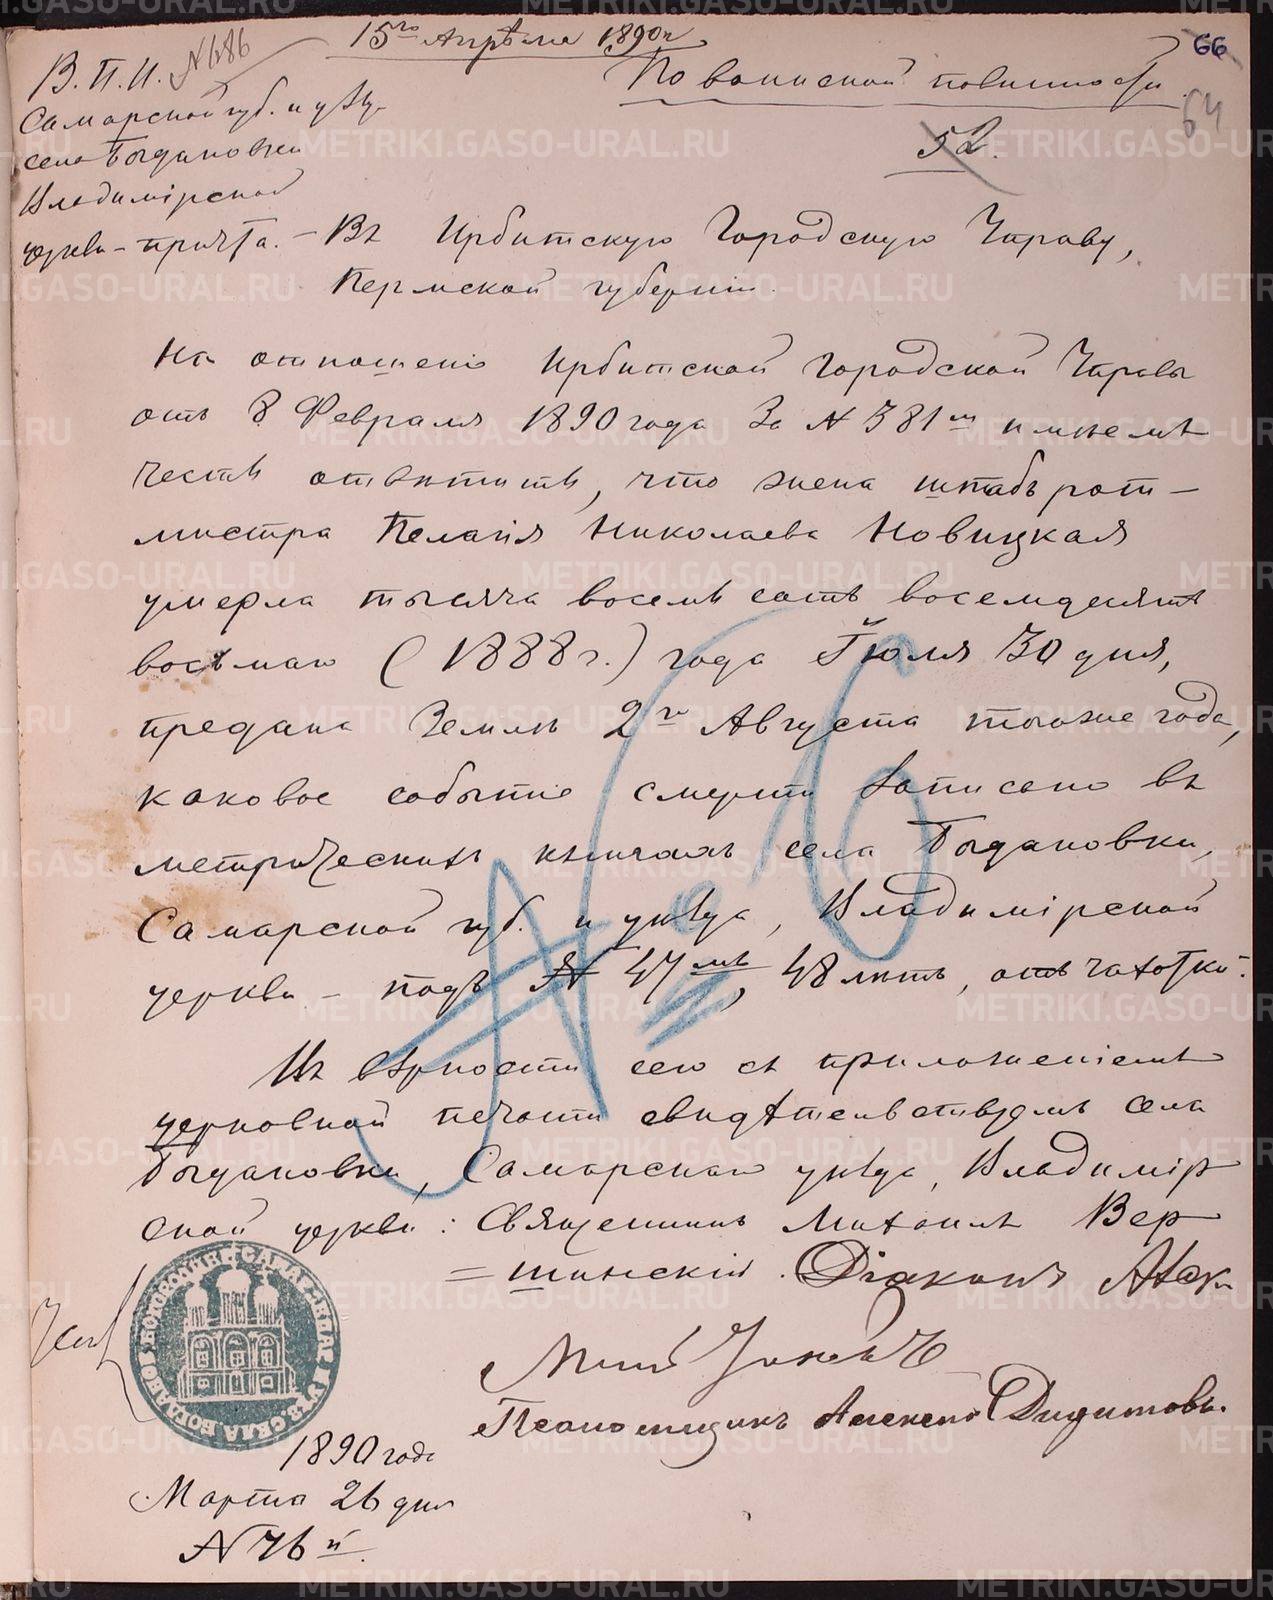 15го Апрѣля 1890 г
66
В. П. И. № 486
По воинской повинности
64
Самарской губ. и уѣзд.
52.
села Богдановки
Владимірской
церкви - причта. - Въ Ирбитскую Городскую Управу,
Пермской губерніи.
На отношеніе Ирбитской Городской Управы
отъ 8 Февраля 1890 года За № 381м имѣемъ
честь отвѣтить, что жена штабъ рот-
мистра Пелагія Николаева Новицкая
умерла тысяча восемь сотъ восемдесятъ
восьмаго (1888 г.) года Іюля 30 дня,
предана Землѣ 2го Августа тогоже года,
каковое событіе смерти Записано въ
метрическихъ книгахъ села Богдановки,
Самарской губ. и уѣзда, Владимірской
церкви - подъ № 47мъ, 48 лѣтъ, отъ чахотки.
№ 6
Въ вѣрности сего съ приложеніемъ
церковной печати свидѣтельствуемъ Села
Богдановки, Самарскаго уѣзда, Владимір
ской церкви: Священникъ Михаилъ Вер
=шинскій. Діаконъ
Псаломщикъ Алексѣй
1890 года
Марта 26 дня
№ 46й.